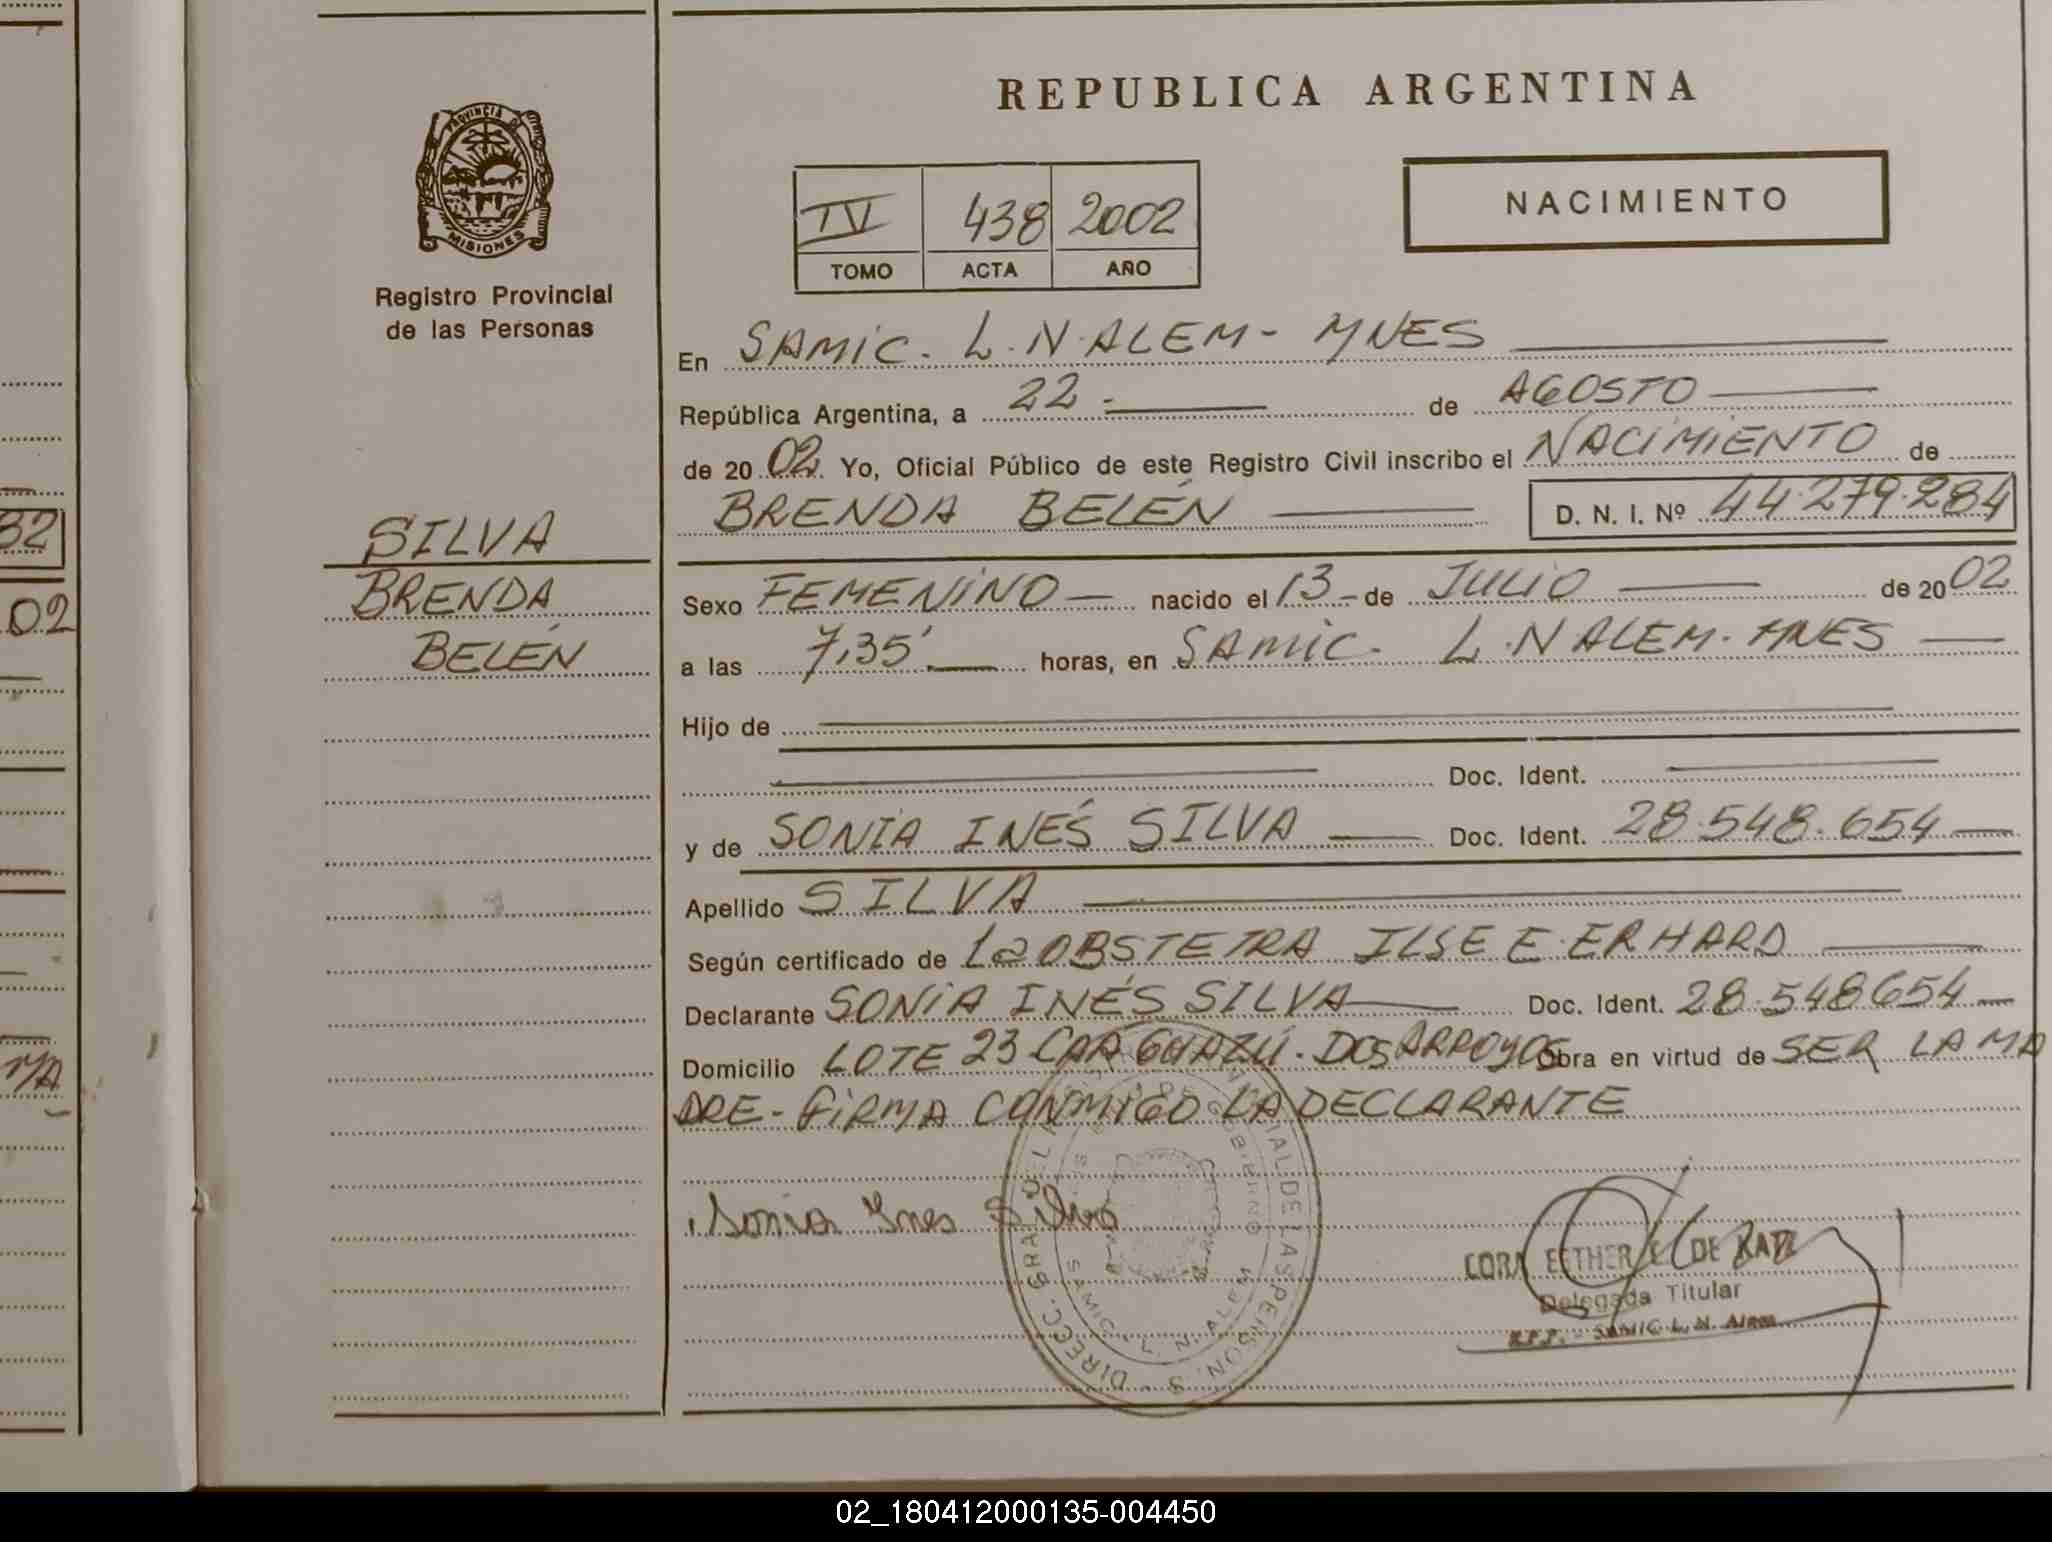 REPUBLICA ARGENTINA
PROVINCIA DE
MISIONES
Registro Provincial
de las Personas
IV 438 2002
TOMO ACTA AÑO
NACIMIENTO
En SAMIC. L.N. ALEM - MNES
República Argentina, a 22 - de AGOSTO
de 2002. Yo, Oficial Público de este Registro Civil inscribo el NACIMIENTO de
BRENDA BELÉN D. N. I. Nº 44.279.284
SILVA
BRENDA
BELÉN
Sexo FEMENINO nacido el 13 - de JULIO de 2002
a las 7,35' horas, en SAMIC. L.N ALEM. MNES
Hijo de
Doc. Ident.
y de SONIA INÉS SILVA Doc. Ident. 28.548.654
Apellido SILVA
Según certificado de La OBSTETRA ILSE E. ERHARD
Declarante SONIA INÉS SILVA Doc. Ident. 28.548654
Domicilio LOTE 23 CAA GUAZÚ. DOS ARROYOS Obra en virtud de SER LA MA
DRE - FIRMA CONMIGO LA DECLARANTE
Sonia Ynes Silva
SAMIC. L. N. ALEM
CORA ESTHER DE
Delegada Titular
R.P.P. - SAMIC L. N. Alem
32
02
02_180412000135-004450